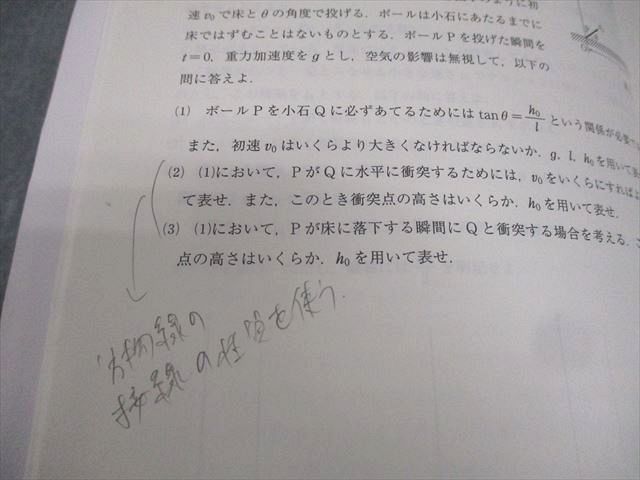 のように初
速v₀で床とθの角度で投げる．ボールは小石にあたるまでに
床ではずむことはないものとする．ボールPを投げた瞬間を
t=0，重力加速度をgとし，空気の影響は無視して，以下の
問に答えよ．
(1) ボールPを小石Qに必ずあてるためにはtanθ=h₀/lという関係が必要で
また，初速v₀はいくらより大きくなければならないか．g，l，h₀を用いて表
(2) (1)において，PがQに水平に衝突するためには，v₀をいくらにすればよ
て表せ．また，このとき衝突点の高さはいくらか．h₀を用いて表せ．
(3) (1)において，Pが床に落下する瞬間にQと衝突する場合を考える．こ
点の高さはいくらか．h₀を用いて表せ．
放物線の
接線の性質を使う．